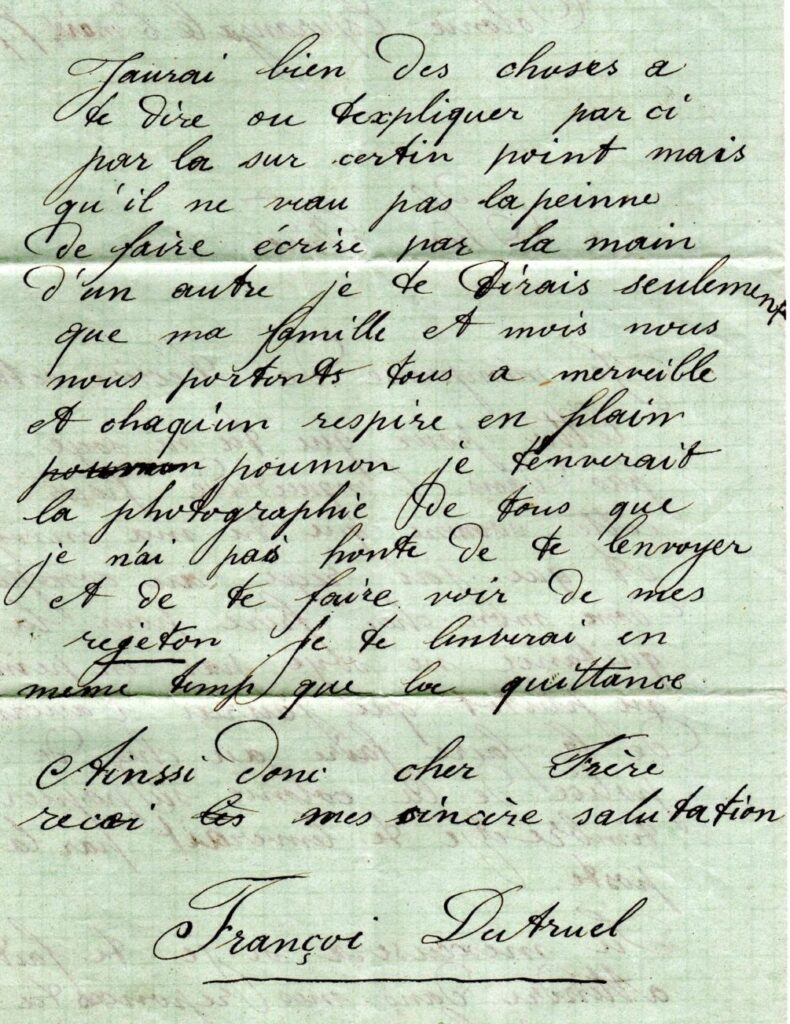 Jaurai bien des choses a
te dire ou texpliquer par ci
par la sur certin point mais
qu'il ne veau pas lapeinne
de faire écrire par la main
d'un autre je te dirais seulement
que ma famille et mois nous
nous portonts tous a merveible
et chaqu'un respire en plain
poumon poumon je tenverait
la photographie de tous que
je n'ai pas honte de te lenvoyer
et de te faire voir de mes
regéton je te lenverai en
meme temp que la quittance
Ainssi donc cher Frère
recoi les mes cincère salutation
Françoi Dutruel